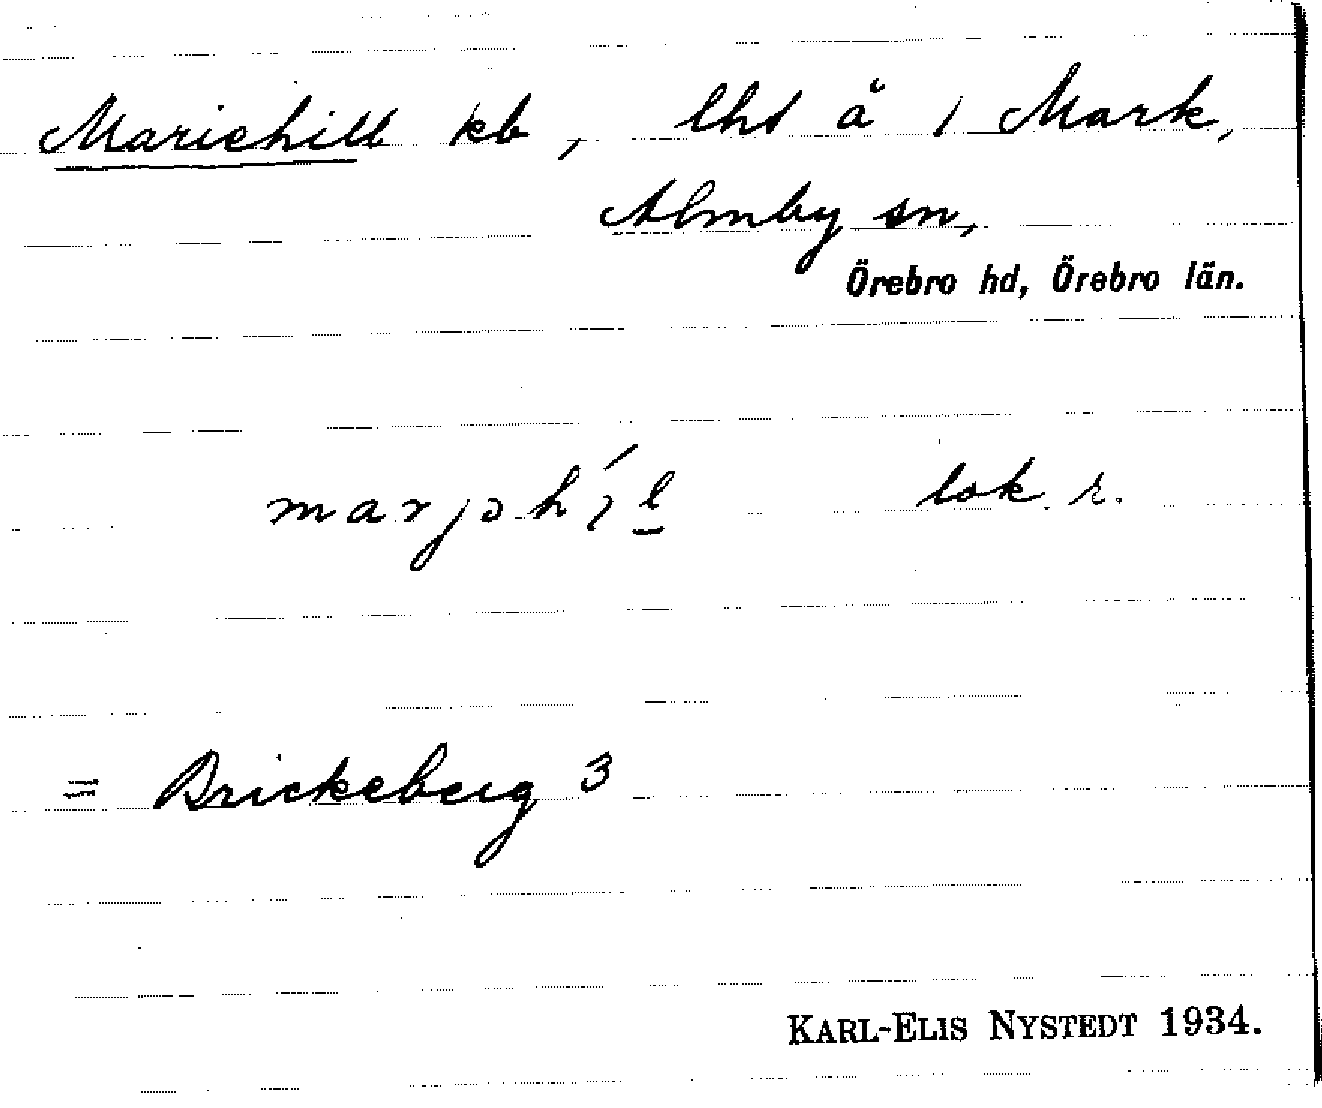 Mariehill kb, lht å 1 Mark,
Almby sn,
Örebro hd, Örebro län.
marjəhíl lok. r.
= Brickeberg 3
KARL-ELIS NYSTEDT 1934.